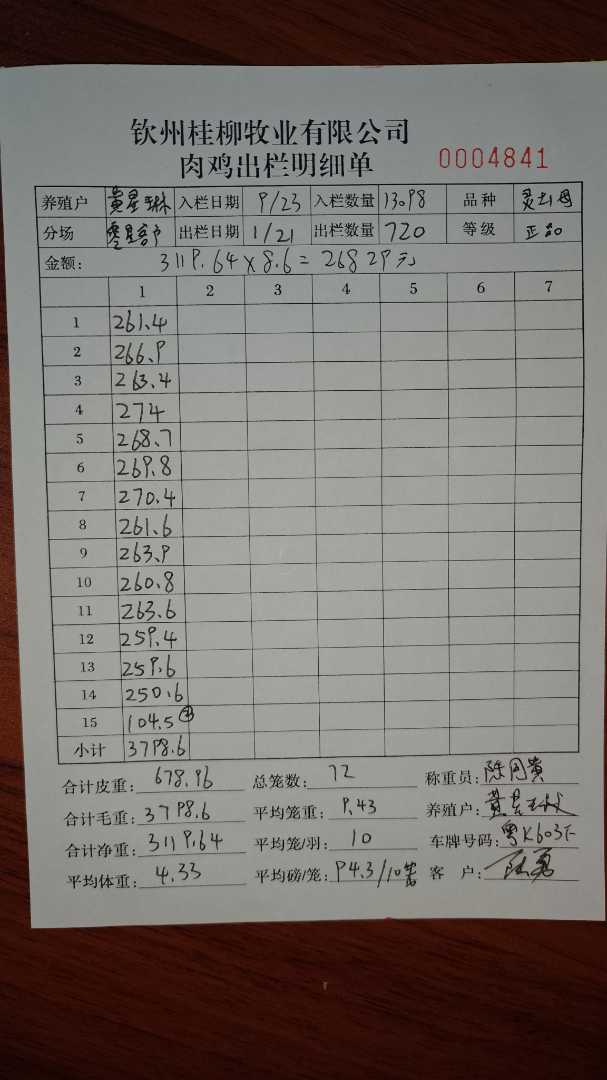 钦州桂柳牧业有限公司
肉鸡出栏明细单 0004841
养殖户 黄星琳 入栏日期 9/23 入栏数量 13098 品种 灵山母
分场 零星客户 出栏日期 1/21 出栏数量 720 等级 正品
金额: 3119.64×8.6=26829元
1 2 3 4 5 6 7
1 261.4
2 266.9
3 263.4
4 274
5 268.7
6 269.8
7 270.4
8 261.6
9 263.9
10 260.8
11 263.6
12 259.4
13 259.6
14 250.6
15 104.5 ②
小计 3798.6
合计皮重: 678.96 总笼数: 72 称重员:
合计毛重: 3798.6 平均笼重: 9.43 养殖户:
合计净重: 3119.64 平均笼/羽: 10 车牌号码: 粤K603
平均体重: 4.33 平均磅/笼: 94.3/10 客户: